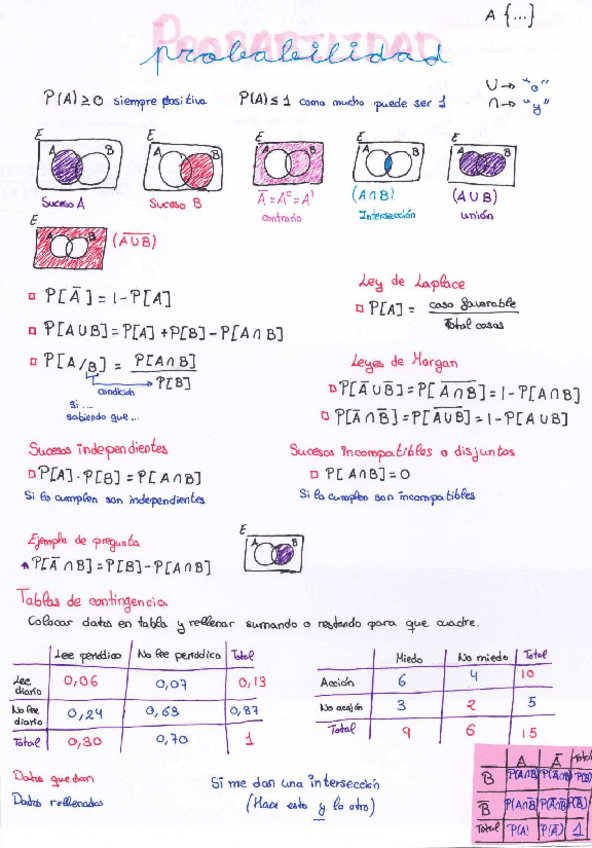 A {...}
PROBABILIDAD
probabilidad
P(A) ≥ 0 siempre positiva P(A) ≤ 1 como mucho puede ser 1
∪ → "o"
∩ → "y"
E E E E
A B A B A B A B A B
Suceso A Suceso B Ā = Aᶜ = A' (A∩B) (A∪B)
contrario Intersección unión
E
A B (A̅∪̅B̅)
P[Ā] = 1 - P[A]
P[A∪B] = P[A] + P[B] - P[A∩B]
P[A/B] = P[A∩B] / P[B]
condición
si ...
sabiendo que ...
Ley de Laplace
P[A] = caso favorable / Total casos
Leyes de Morgan
P[Ā∪B̅] = P[A̅∩̅B̅] = 1 - P[A∩B]
P[Ā∩B̅] = P[A̅∪̅B̅] = 1 - P[A∪B]
Sucesos independientes
P[A]·P[B] = P[A∩B]
Si lo cumplen son independientes
Sucesos incompatibles o disjuntos
P[A∩B] = 0
Si lo cumplen son incompatibles
Ejemplo de pregunta
P[Ā∩B] = P[B] - P[A∩B]
E
A B
Tablas de contingencia
Colocar datos en tabla y rellenar sumando o restando para que cuadre.
Lee periódico No lee periódico Total
Lee diario 0,06 0,07 0,13
No lee diario 0,24 0,63 0,87
Total 0,30 0,70 1
Miedo No miedo Total
Acción 6 4 10
No acción 3 2 5
Total 9 6 15
Datos que dan
Datos rellenados
Si me dan una intersección
(Hace esto y lo otro)
A Ā Total
B P(A∩B) P(Ā∩B) P(B)
B̅ P(A∩B̅) P(Ā∩B̅) P(B̅)
Total P(A) P(Ā) 1